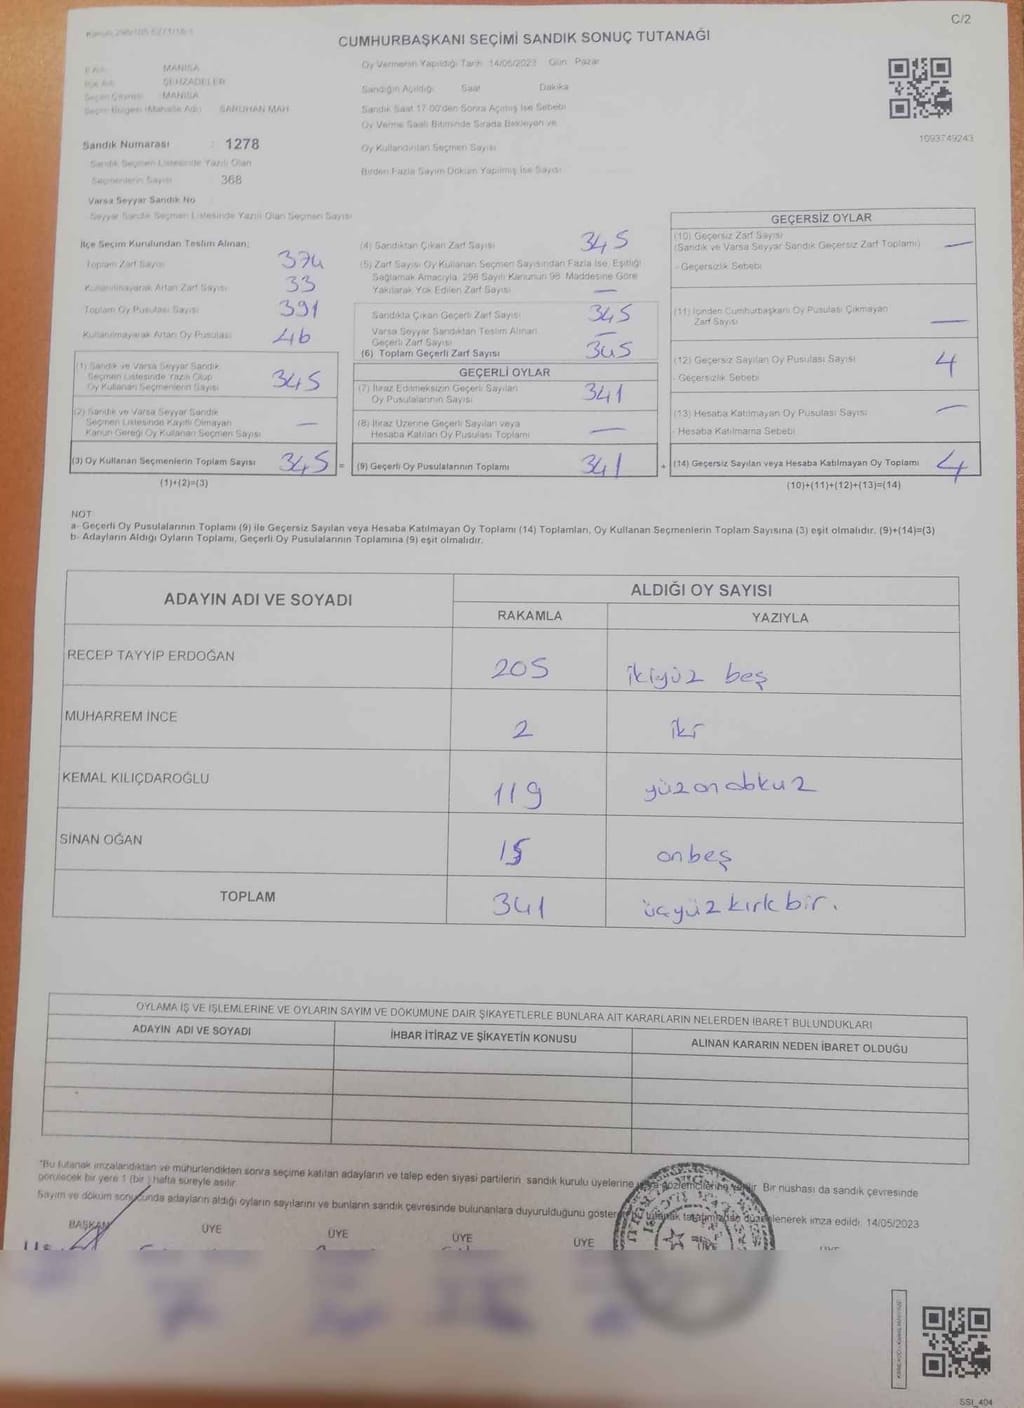 C/2
CUMHURBAŞKANI SEÇİMİ SANDIK SONUÇ TUTANAĞI
Oy Vermenin Yapıldığı Tarih 14/05/2023 Gün Pazar
İl Adı MANİSA
İlçe Adı ŞEHZADELER
Seçim Çevresi MANİSA
Seçim Bölgesi (Mahalle Adı) SARUHAN MAH
Sandığın Açıldığı Saat Dakika
Sandık Saat 17 00'den Sonra Açılmış İse Sebebi
Oy Verme Saati Bitiminde Sırada Bekleyen ve
Oy Kullandırılan Seçmen Sayısı
Birden Fazla Sayım Döküm Yapılmış İse Sayısı
1093749243
Sandık Numarası : 1278
Sandık Seçmen Listesinde Yazılı Olan
Seçmenlerin Sayısı : 368
Varsa Seyyar Sandık No
Seyyar Sandık Seçmen Listesinde Yazılı Olan Seçmen Sayısı
İlçe Seçim Kurulundan Teslim Alınan;
Toplam Zarf Sayısı 374
Kullanılmayarak Artan Zarf Sayısı 33
Toplam Oy Pusulası Sayısı 391
Kullanılmayarak Artan Oy Pusulası 46
(1) Sandık ve Varsa Seyyar Sandık
Seçmen Listesinde Yazılı Olup
Oy Kullanan Seçmenlerin Sayısı 345
(2) Sandık ve Varsa Seyyar Sandık
Seçmen Listesinde Kayıtlı Olmayan
Kanun Gereği Oy Kullanan Seçmen Sayısı —
(3) Oy Kullanan Seçmenlerin Toplam Sayısı 345 =
(1)+(2)=(3)
(4) Sandıktan Çıkan Zarf Sayısı 345
(5) Zarf Sayısı Oy Kullanan Seçmen Sayısından Fazla İse, Eşitliği
Sağlamak Amacıyla, 298 Sayılı Kanunun 98. Maddesine Göre
Yakılarak Yok Edilen Zarf Sayısı —
Sandıkta Çıkan Geçerli Zarf Sayısı 345
Varsa Seyyar Sandıktan Teslim Alınan
Geçerli Zarf Sayısı —
(6) Toplam Geçerli Zarf Sayısı 345
GEÇERLİ OYLAR
(7) İtiraz Edilmeksizin Geçerli Sayılan
Oy Pusulalarının Sayısı 341
(8) İtiraz Üzerine Geçerli Sayılan veya
Hesaba Katılan Oy Pusulası Toplamı —
(9) Geçerli Oy Pusulalarının Toplamı 341 +
GEÇERSİZ OYLAR
(10) Geçersiz Zarf Sayısı
(Sandık ve Varsa Seyyar Sandık Geçersiz Zarf Toplamı) —
- Geçersizlik Sebebi
(11) İçinden Cumhurbaşkanı Oy Pusulası Çıkmayan
Zarf Sayısı —
(12) Geçersiz Sayılan Oy Pusulası Sayısı 4
- Geçersizlik Sebebi
(13) Hesaba Katılmayan Oy Pusulası Sayısı —
- Hesaba Katılmama Sebebi
(14) Geçersiz Sayılan veya Hesaba Katılmayan Oy Toplamı 4
(10)+(11)+(12)+(13)=(14)
NOT
a- Geçerli Oy Pusulalarının Toplamı (9) ile Geçersiz Sayılan veya Hesaba Katılmayan Oy Toplamı (14) Toplamları, Oy Kullanan Seçmenlerin Toplam Sayısına (3) eşit olmalıdır. (9)+(14)=(3)
b- Adayların Aldığı Oyların Toplamı, Geçerli Oy Pusulalarının Toplamına (9) eşit olmalıdır.
ADAYIN ADI VE SOYADI ALDIĞI OY SAYISI
RAKAMLA YAZIYLA
RECEP TAYYİP ERDOĞAN 205 ikiyüz beş
MUHARREM İNCE 2 iki
KEMAL KILIÇDAROĞLU 119 yüzondokuz
SİNAN OĞAN 15 onbeş
TOPLAM 341 üçyüzkırkbir.
OYLAMA İŞ VE İŞLEMLERİNE VE OYLARIN SAYIM VE DÖKÜMÜNE DAİR ŞİKAYETLERLE BUNLARA AİT KARARLARIN NELERDEN İBARET BULUNDUKLARI
ADAYIN ADI VE SOYADI İHBAR İTİRAZ VE ŞİKAYETİN KONUSU ALINAN KARARIN NEDEN İBARET OLDUĞU
*Bu tutanak imzalandıktan ve mühürlendikten sonra seçime katılan adayların ve talep eden siyasi partilerin sandık kurulu üyelerine Bir nüshası da sandık çevresinde
görülecek bir yere 1 (bir) hafta süreyle asılır.
Sayım ve döküm sonucunda adayların aldığı oyların sayılarını ve bunların sandık çevresinde bulunanlara duyurulduğunu gösteren bu tutanak tarafımızdan düzenlenerek imza edildi. 14/05/2023
BAŞKAN ÜYE ÜYE ÜYE ÜYE
SSI_404